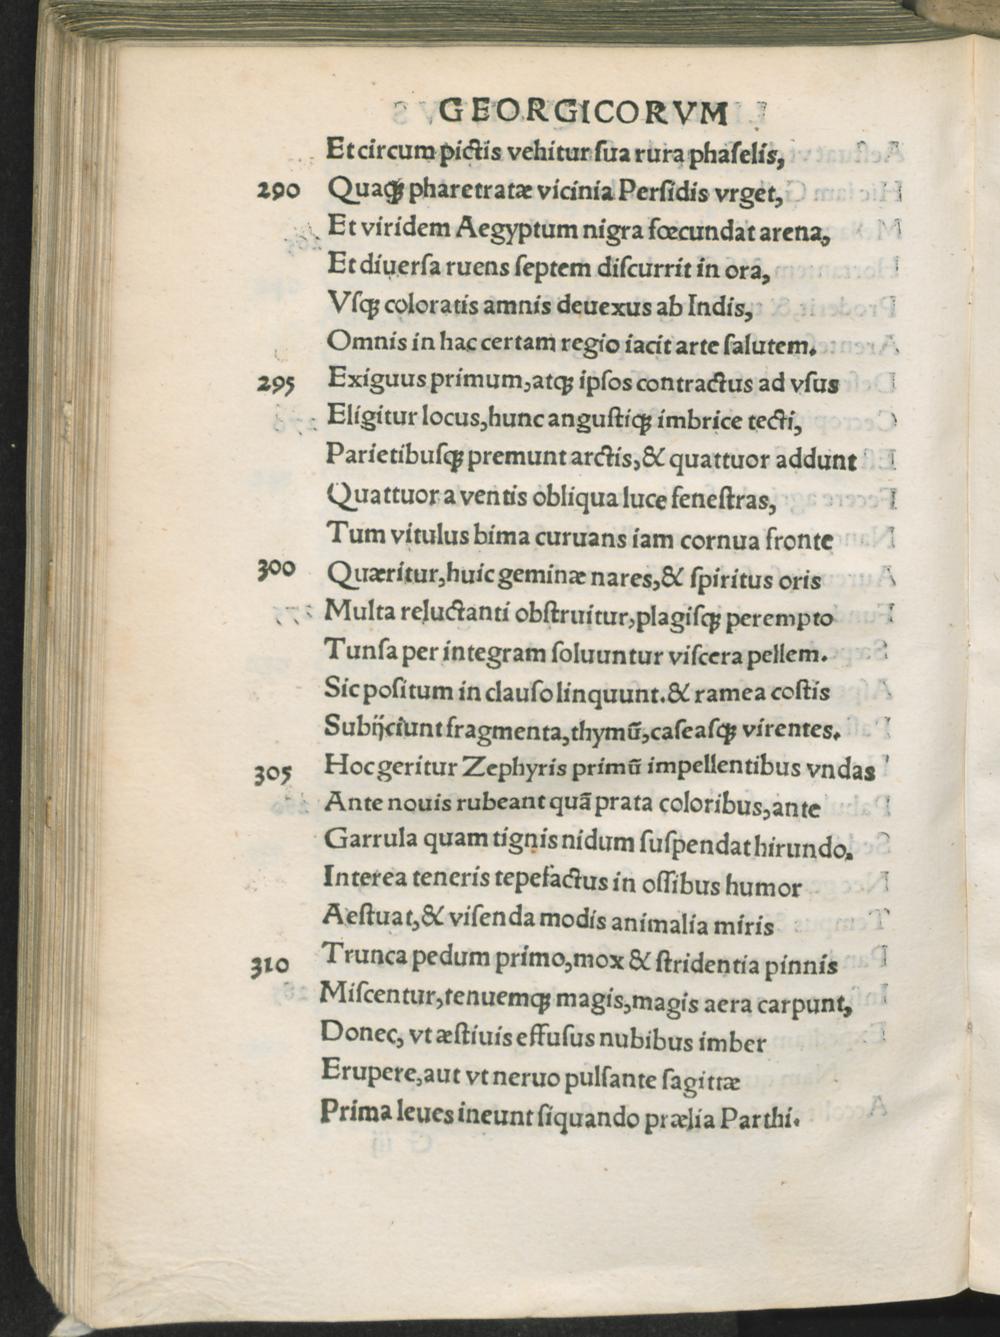 GEORGICORVM
Et circum pictis vehitur ſua rura phaſelis,
290 Quaq; pharetratæ vicinia Perſidis vrget,
Et viridem Aegyptum nigra fœcundat arena,
Et diuerſa ruens ſeptem diſcurrit in ora,
Vſq; coloratis amnis deuexus ab Indis,
Omnis in hac certam regio iacit arte ſalutem.
295 Exiguus primum, atq; ipſos contractus ad vſus
Eligitur locus, hunc anguſtiq; imbrice tecti,
Parietibuſq; premunt arctis, & quattuor addunt
Quattuor a ventis obliqua luce feneſtras,
Tum vitulus bima curuans iam cornua fronte
300 Quæritur, huic geminæ nares, & ſpiritus oris
Multa reluctanti obſtruitur, plagiſq; perempto
Tunſa per integram ſoluuntur viſcera pellem.
Sic poſitum in clauſo linquunt. & ramea coſtis
Subijciunt fragmenta, thymū, caſeaſq; virentes.
305 Hoc geritur Zephyris primū impellentibus vndas
Ante nouis rubeant quā prata coloribus, ante
Garrula quam tignis nidum ſuſpendat hirundo.
Interea teneris tepefactus in oſſibus humor
Aeſtuat, & viſenda modis animalia miris
310 Trunca pedum primo, mox & ſtridentia pinnis
Miſcentur, tenuemq; magis, magis aera carpunt,
Donec, vt æſtiuis effuſus nubibus imber
Erupere, aut vt neruo pulſante ſagittæ
Prima leues ineunt ſiquando prælia Parthi.